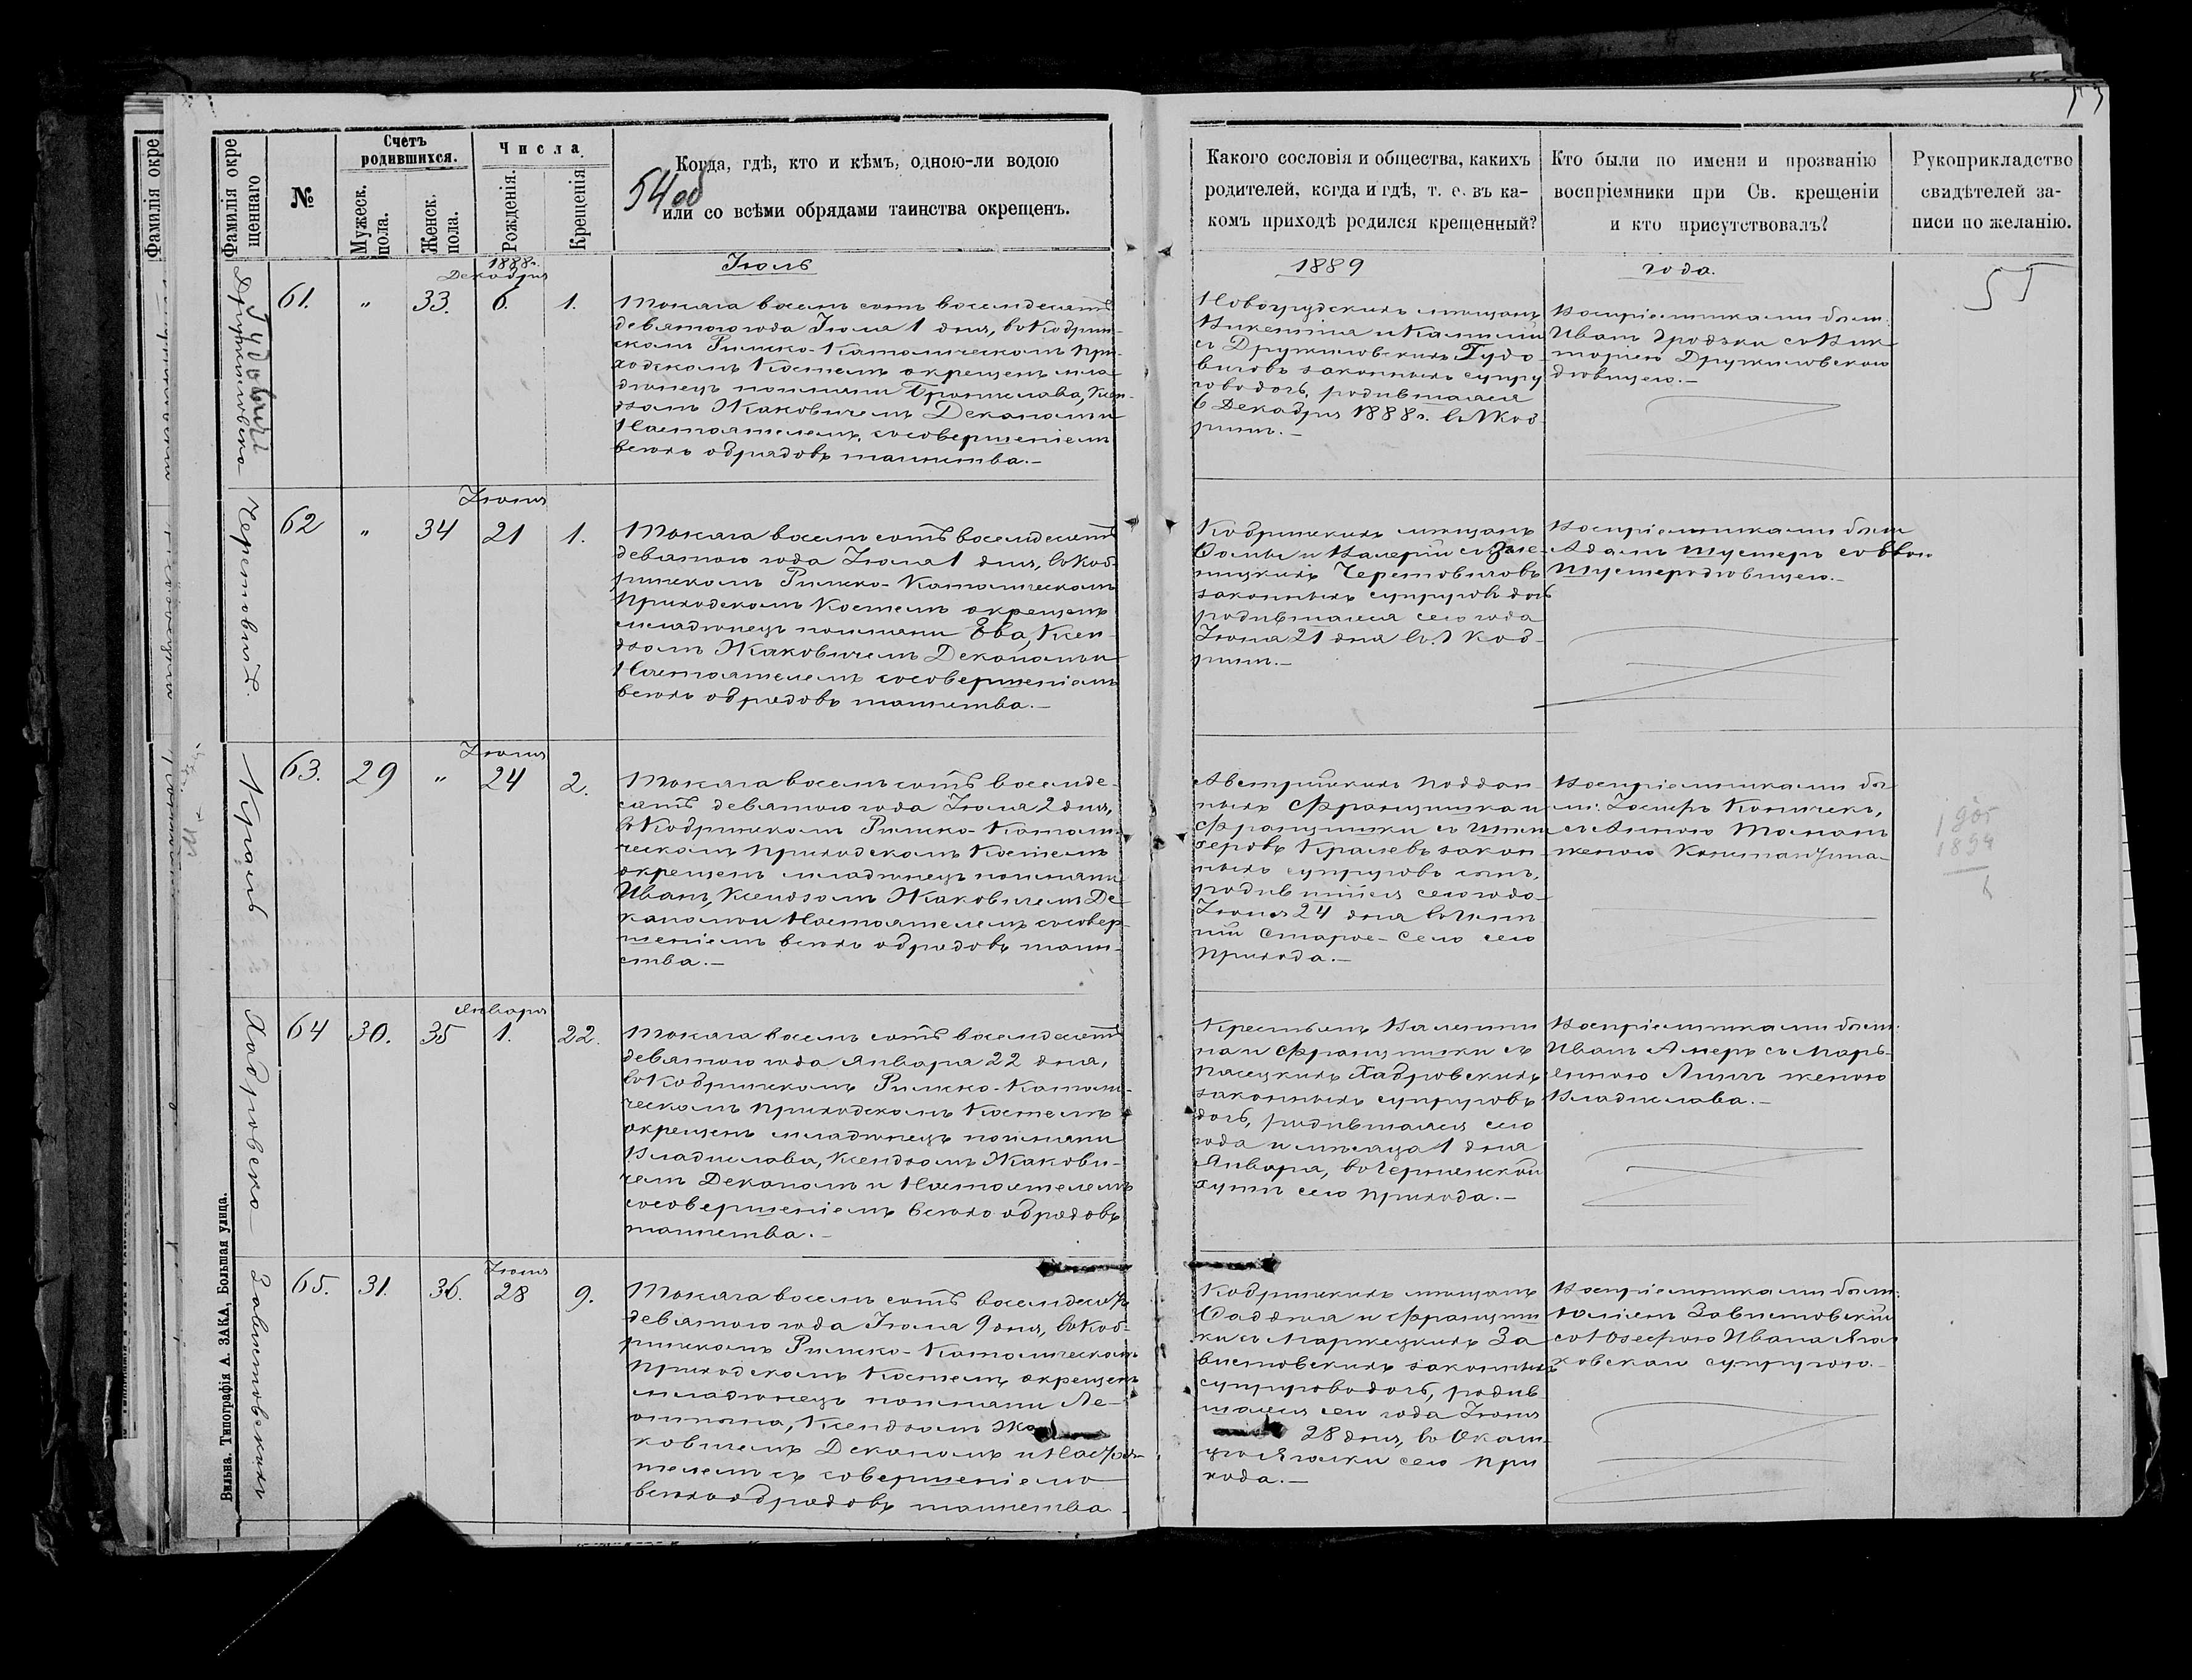 Фамилія окре
Фамилія окре
щеннаго
№
Счетъ
родившихся.
Мужеск.
пола.
Женск.
пола.
Числа
Рожденія.
Крещенія.
Когда, гдѣ, кто и кѣмъ, одною-ли водою
или со всѣми обрядами таинства окрещенъ.
54 об
Какого сословія и общества, какихъ
родителей, когда и гдѣ, т. е. въ ка-
комъ приходѣ родился крещенный?
Кто были по имени и прозванію
воспріемники при Св. крещеніи
и кто присутствовалъ?
Рукоприкладство
свидѣтелей за-
писи по желанію.
Іюль
1889
года.
55
Гудовичъ
61.
"
33.
1888г.
Декабря
6.
1.
Тысяча восемь сотъ восемьдесятъ
девятого года Іюля 1 дня, въ Кобрин-
скомъ Римско-Католическомъ При-
ходскомъ Костелѣ окрещенъ мла-
денецъ по имени Брониславa, Ксен-
дзомъ Жаковичемъ Деканомъ и
Настоятелемъ, съ совершеніемъ
всѣхъ обрядовъ таинства.—
Новогрудскихъ мѣщанъ
Викентія и Камиліи
съ Дружиловскихъ Гудо-
вичовъ законныхъ супру-
говъ дочь, родившаяся
6 Декабря 1888г. въ г. Коб-
ринѣ.—
Воспріемниками были:
Иванъ Дроздъ съ Вик-
торіею Дружиловскою
дѣвицею.—
Черетовичъ.
62
"
34
Іюня
21
1.
Тысяча восемь сотъ восемьдесятъ
девятого года Іюля 1 дня, въ Коб-
ринскомъ Римско-Католическомъ
Приходскомъ Костелѣ окрещенъ
младенецъ по имени Ева, Ксен-
дзомъ Жаковичемъ Деканомъ и
Настоятелемъ съ совершеніемъ
всѣхъ обрядовъ таинства.—
Кобринскихъ мѣщанъ
Ѳомы и Валеріи съ Зале-
ницкихъ Черетовичовъ
законныхъ супруговъ дочь
родившаяся сего года
Іюня 21 дня въ г. Коб-
ринѣ.—
Воспріемниками были
Адамъ Шустеръ съ Евою
Шустеръ дѣвицею.—
Краль
63.
29
"
Іюня
24
2.
Тысяча восемь сотъ восемьде-
сятъ девятого года Іюля 2 дня,
въ Кобринскомъ Римско-Католи-
ческомъ Приходскомъ Костелѣ
окрещенъ младенецъ по имени
Иванъ, Ксендзомъ Жаковичемъ Де-
каномъ и Настоятелемъ съ совер-
шеніемъ всѣхъ обрядовъ таин-
ства.—
Австрійскихъ поддан-
ныхъ Францишка и
Францишки съ
Кралевъ закон-
ныхъ супруговъ сынъ,
родившійся сего года
Іюня 24 дня въ имѣ-
ніи Старое-Село сего
Прихода.—
Воспріемниками бы-
ли: Іосифъ Копичекъ,
съ Анною Томанъ
женою Константина—
1905
1894
Хабровско
64
30.
35
Января
1.
22.
Тысяча восемь сотъ восемьдесятъ
девятого года Января 22 дня,
въ Кобринскомъ Римско-Католи-
ческомъ Приходскомъ Костелѣ
окрещенъ младенецъ по имени
Владислава, Ксендзомъ Жакови-
чемъ Деканомъ и Настоятелемъ
съ совершеніемъ всѣхъ обрядовъ
таинства.—
Крестьянъ Валенти-
на и Францишки съ
Пасецкихъ Хабровскихъ
законныхъ супруговъ
дочь, родившаяся сего
года и мѣсяца 1 дня
Января,
сего Прихода.—
Воспріемниками были:
Иванъ съ Марь-
женою
Владислава.—
Завистовскихъ
65.
31.
36.
Іюня
28
9.
Тысяча восемь сотъ восемьдесятъ
девятого года Іюля 9 дня, въ Коб-
ринскомъ Римско-Католическомъ
Приходскомъ Костелѣ окрещенъ
младенецъ по имени Ле-
Ксендзомъ Жа-
ковичемъ Деканомъ и Настоя-
телемъ съ совершеніемъ
всѣхъ обрядовъ таинства.
Кобринскихъ мѣщанъ
Ѳаддея и Францишки
съ Маржецкихъ За-
вистовскихъ законныхъ
супруговъ дочь, родив-
шаяся сего года Іюня
28 дня,
сего При-
хода.—
Воспріемниками были:
Юліанъ Завистовскій
съ Юзефою Ивана
супругою.—
Вильна. Типографія А. ЗАКА, Большая улица.